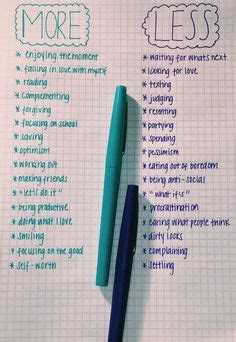 MORE
* enjoying the moment
* falling in love with myself
* reading
* complementing
* forgiving
* focusing on school
* saving
* optimism
* working out
* making friends
* "let's do it"
* being productive
* doing what I love
* smiling
* focusing on the good
* self-worth
LESS
* waiting for what's next
* looking for love
* texting
* judging
* resenting
* partying
* spending
* pessimism
* eating out of boredom
* being anti-social
* "what if's"
* procrastination
* caring what people think
* dirty looks
* complaining
* settling